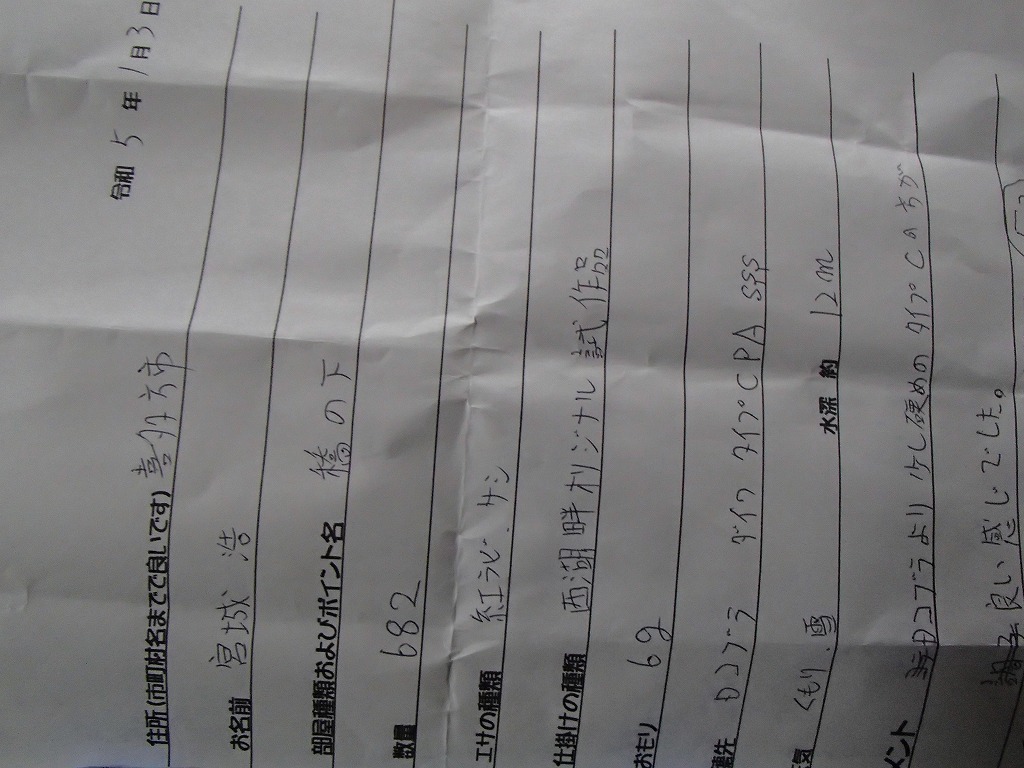 令和 5 年 1 月 3 日
住所(市町村名までで良いです) 喜多方市
お名前 宮城 浩
部屋種類およびポイント名 橋の下
数量 682
エサの種類 紅ラビ・サシ
仕掛けの種類 西湖畔オリジナル 試式作品
おもり 6g
穂先 日コブラ ダイワ タイプCPA SSS
天気 くもり、雪 水深 約 12m
メント コブラより少し硬めのタイプCAちが
良い感じでした。